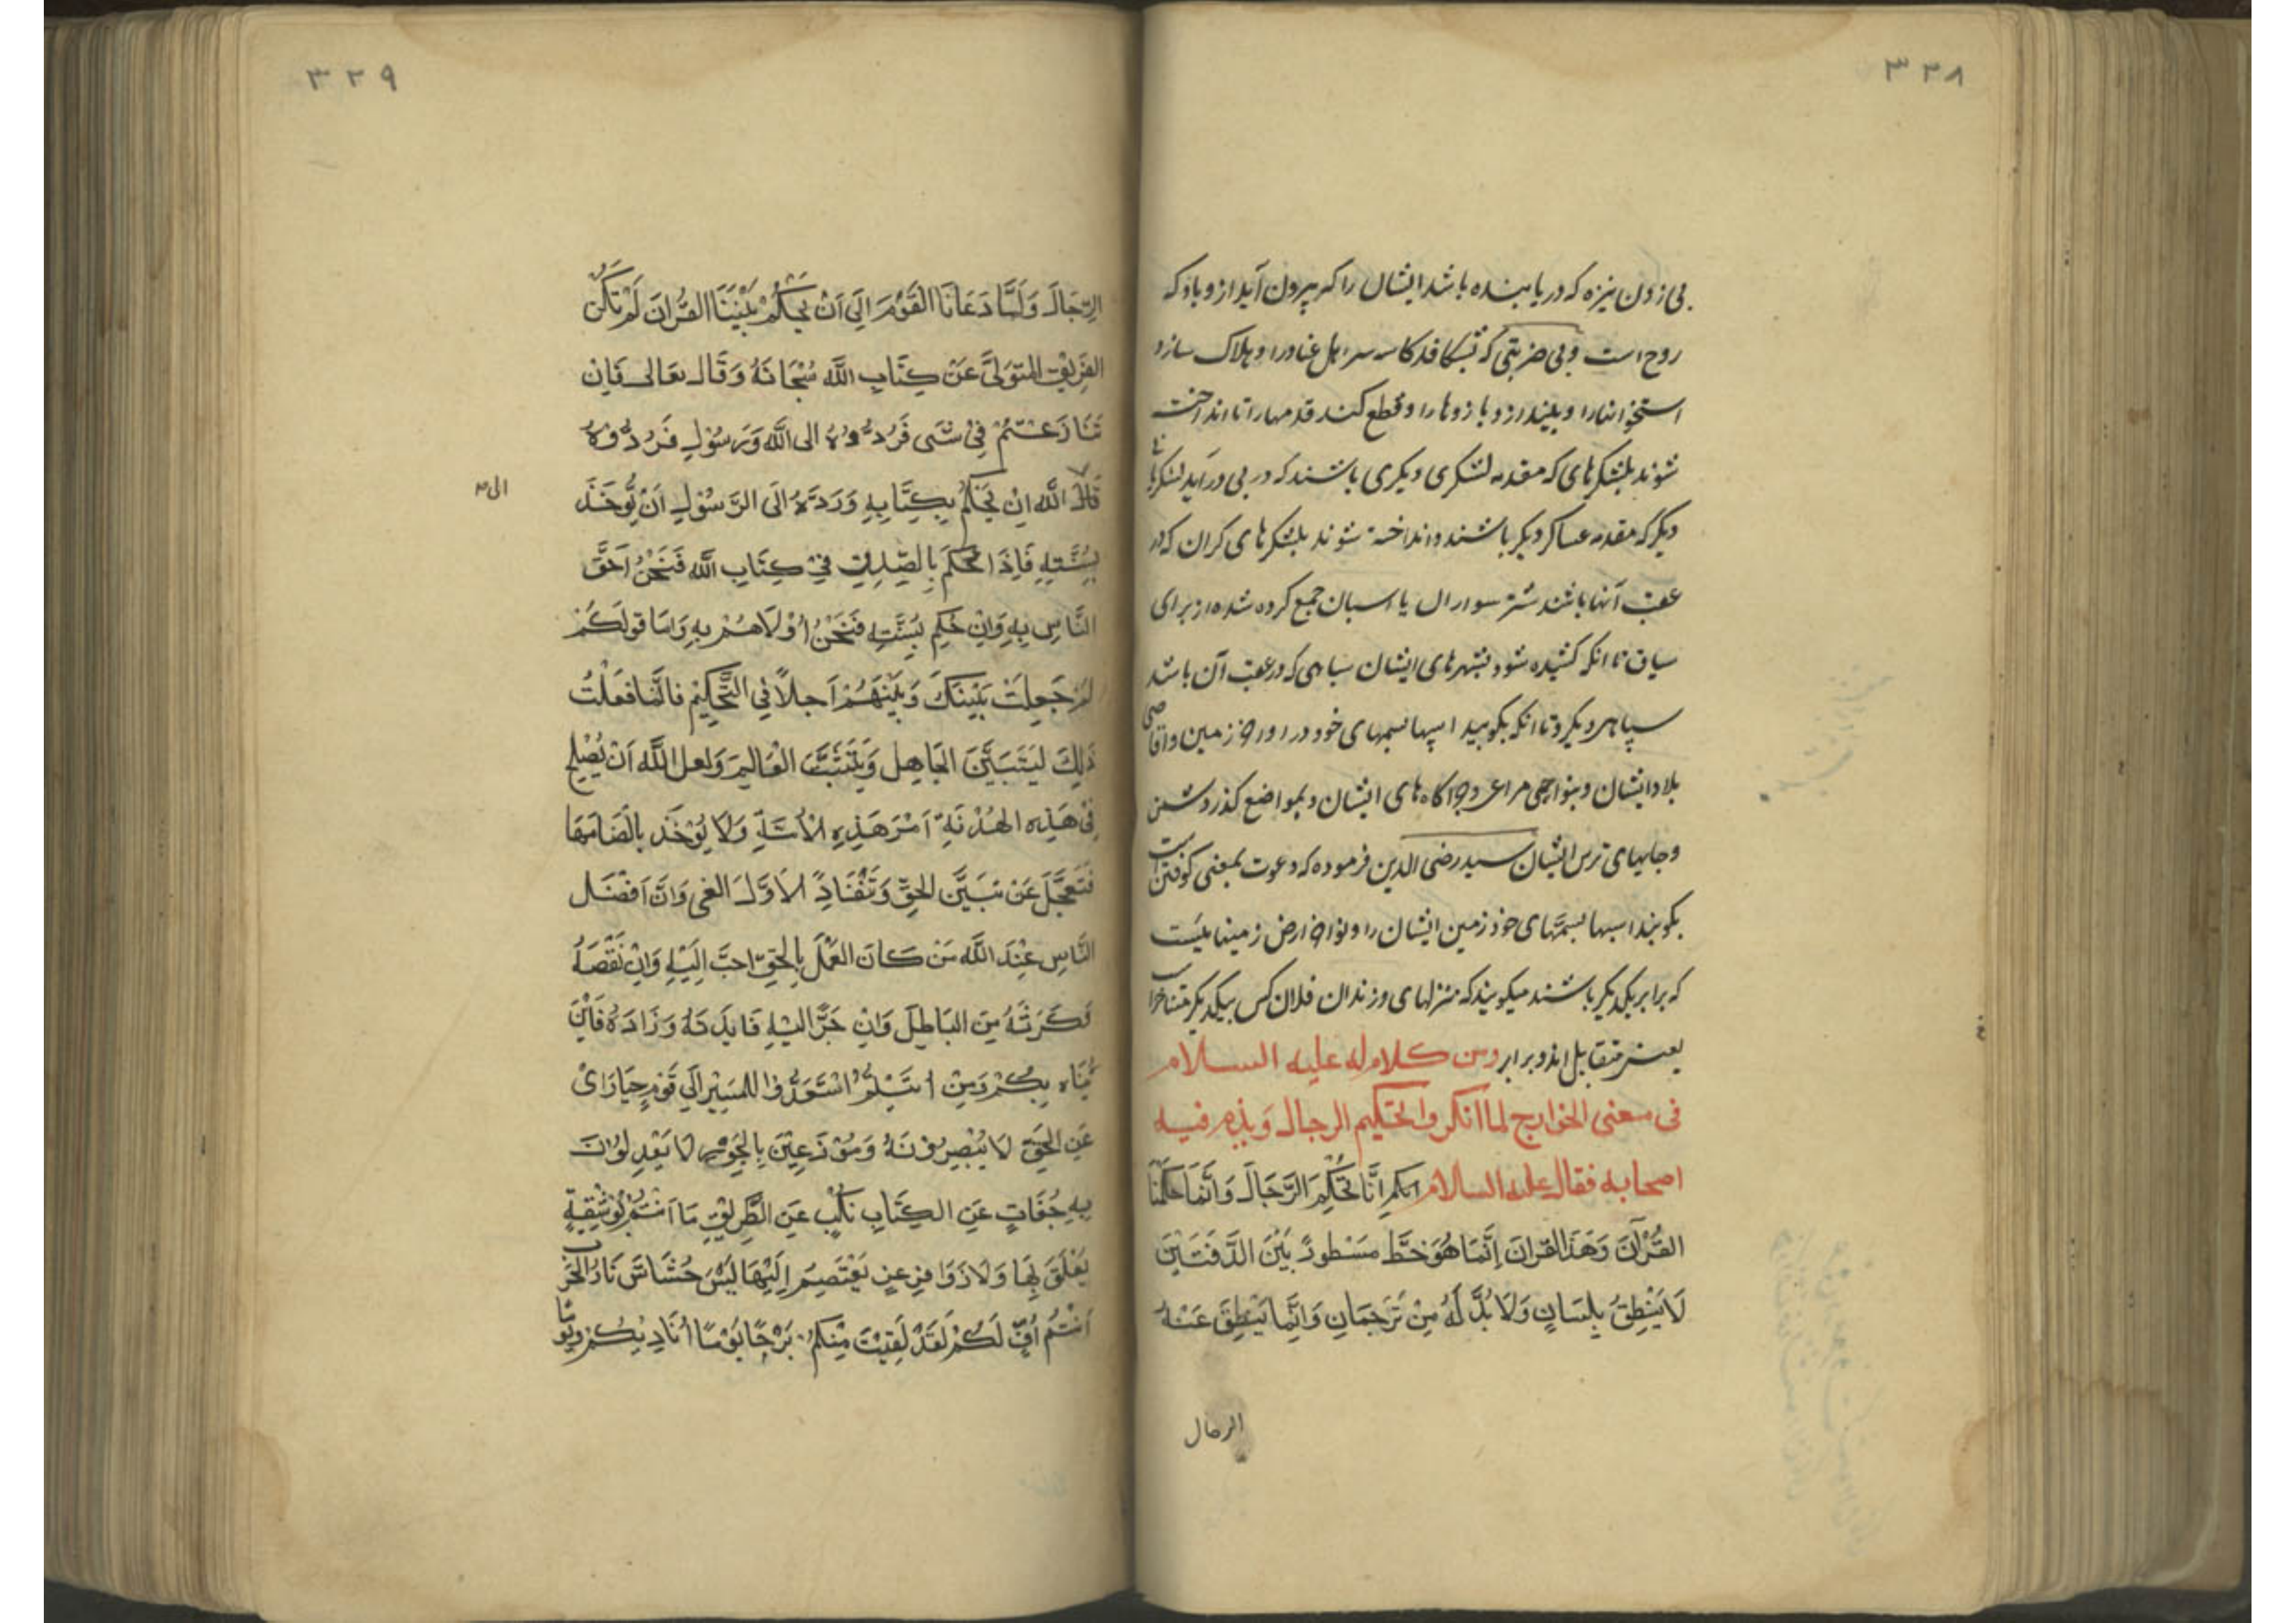 ۳۳۸
بی زدن نیزه که دریابنده باشد ایشان را که بیرون آید ازو باد که
روح است و بی ضربتی که بشکافد کاسه سر اهل عناد را و هلاک سازد
استخوانها را و بیندازد بازوها را و قطع کند قدمها را تا انداخت
شوند بلشکرهای که مقدمه لشکری دیکری باشند که در پی درآید لشکرهای
دیکر که مقدمه عساکر دیکر باشند و انداخته شوند بلشکرهای کران که در
عقب آنها باشند شتر سواران یا اسبان جمع کرده شده از برای
سباق تا آنکه کشیده شود بشهرهای ایشان سپاهی که در عقب آن باشد
سپاهی دیکر و تا آنکه بکوبید اسپها بسمهای خود در اواخر زمین و اقاصی
بلاد ایشان و بنواحی مراعی و چراکاه های ایشان و بمواضع کذر دشمن
و جایهای ترس ایشان سید رضی الدین فرموده که دعوت بمعنی کوفتن است
بکوبند اسبها بسمهای خود زمین ایشان را و نواحر ارض زمینهایست
که برابر یکدیکر باشند میکویند که منزلهای فرزندان فلان کس بیکدیکر متناحراست
یعنی متقابل اند و برابر ومن کلام له علیه السلام
فی معنی الخوارج لما انکروا تحکیم الرجال وَیذم فیه
اصحابه فقال علیه السلام انا لم نُحَکِّمِ الرَّجَالَ وَاِنَّمَا حَکَّمْنَا
القُرْآنَ وَهَذَا القرانَ اِنَّمَا هُوَ خَطَّ مَسْطُورٌ بَیْنَ الدَّفَتَیْنِ
لَا یَنْطِقُ بِلِسَانٍ وَلَا بُدَّ لَهُ مِنْ تَرْجَمَانِ وَاِنَّمَا یَنْطِقُ عَنْهُ
الرجال
۳۳۹
الرِّجَالُ وَلَمَّا دَعَانَا القَوْمُ اِلَی اَنْ یَحْکُمْ بَیْنَنَا القُرْانَ لَمْ نَکُنْ
الفَرِیْقَ المُتَوَلَّی عَنْ کِتَابِ اللَّهِ سُبْحَانَهُ وَقَالَ تعَالی فَاِنْ
تَنَازَعْتُمْ فِیْ شَیی فَرُدُّوْهُ الی اللَّه وَرَسُوْلِهِ فَرُدُّوْهُ
قَالَ اللَّه اِنْ یَحْکُمُ بِکِتَابِهِ وَرَدَّهُ اِلَی الرَّسُوْلِ اَنْ یُّوخَذَ
الی
بِسُنَّتِهِ فَاِذَا حُکِمَ بِالصِّدْقِ فِیْ کِتَابِ اللَّهِ فَنَحْنُ اَحَقَّ
النَّاسِ بِهِ وَاِنْ حُکِمَ بِسُنَّتِهِ فَنَحْنُ اُوْلَاهُمْ بِهِ وَاَمَا قولُکُمْ
لِمَ جَعَلْتَ بَیْنَکَ وَبَیْنَهُمْ اَجلاً فِی التَّحْکِیْمِ فَانَّمَا فَعَلْتُ
ذَلِکَ لِیَتَبَیَّنَ الجَاهِلُ وَیَتَثَبَّتَ العَالِمَ وَلعل اللَّهَ اَنْ یُصْلِحَ
فِی هَذِهِ الهُدْنَةِ اَمْرَ هَذِهِ الْاُمَّةِ وَلَا یُوْخَذ بِاَکْضَامِهَا
فَتَعَجَّلَ عَنْ تَبَیَّنِ الحَقِّ وَتَنْقَادَ لِاَوَّلِ الغَی وَاَنَّ اَفْضَلَ
النَّاسِ عِنْدَ اللَّهِ مَنْ کَانَ العَمَلُ بِالْحَقِّ احَبَّ اِلَیْهِ وَاِنْ نَقَصَهُ
وَکَرَثَهُ مِنَ البَاطِلِ وَاِنْ جَرَّ اِلَیْهِ فَایدَتهُ وَزَادَهُ فَاَیْنَ
یُتَاه بِکُمْ وَمِنْ اَیْنَ اُتِیْتُمْ اسْتَعِدُّوْا لِلْمَسِیْرِ اِلَی قَوْمٍ حَیَارَای
عَنِ الحَقِّ لَا یُبْصِرُوْنَهُ وَمُوْزَعِیْنَ بِالجَوْرِ لَا یَعْدِلُوْنَ
بِهِ جُفَاتٍ عَنِ الکِتَابِ نُکُبٍ عَنِ الطَّرِیْقِ مَا اَنْتُمْ بِوَثِیْقَةٍ
یَعْلَقُ بِهَا وَلَا زَوَافِرِ عِزٍّ یَعْتَصِمُ اِلَیْهَا لَبِئْسَ حُشَّاشُ نَارِ الْحَرْبِ
اَنْتُمْ اُفٍّ لَکُمْ لَقَدْ لَقِیْتُ مِنْکُمْ بَرْحًا یَوْمًا اُنَادِیْکُمْ وَیَوْمًا